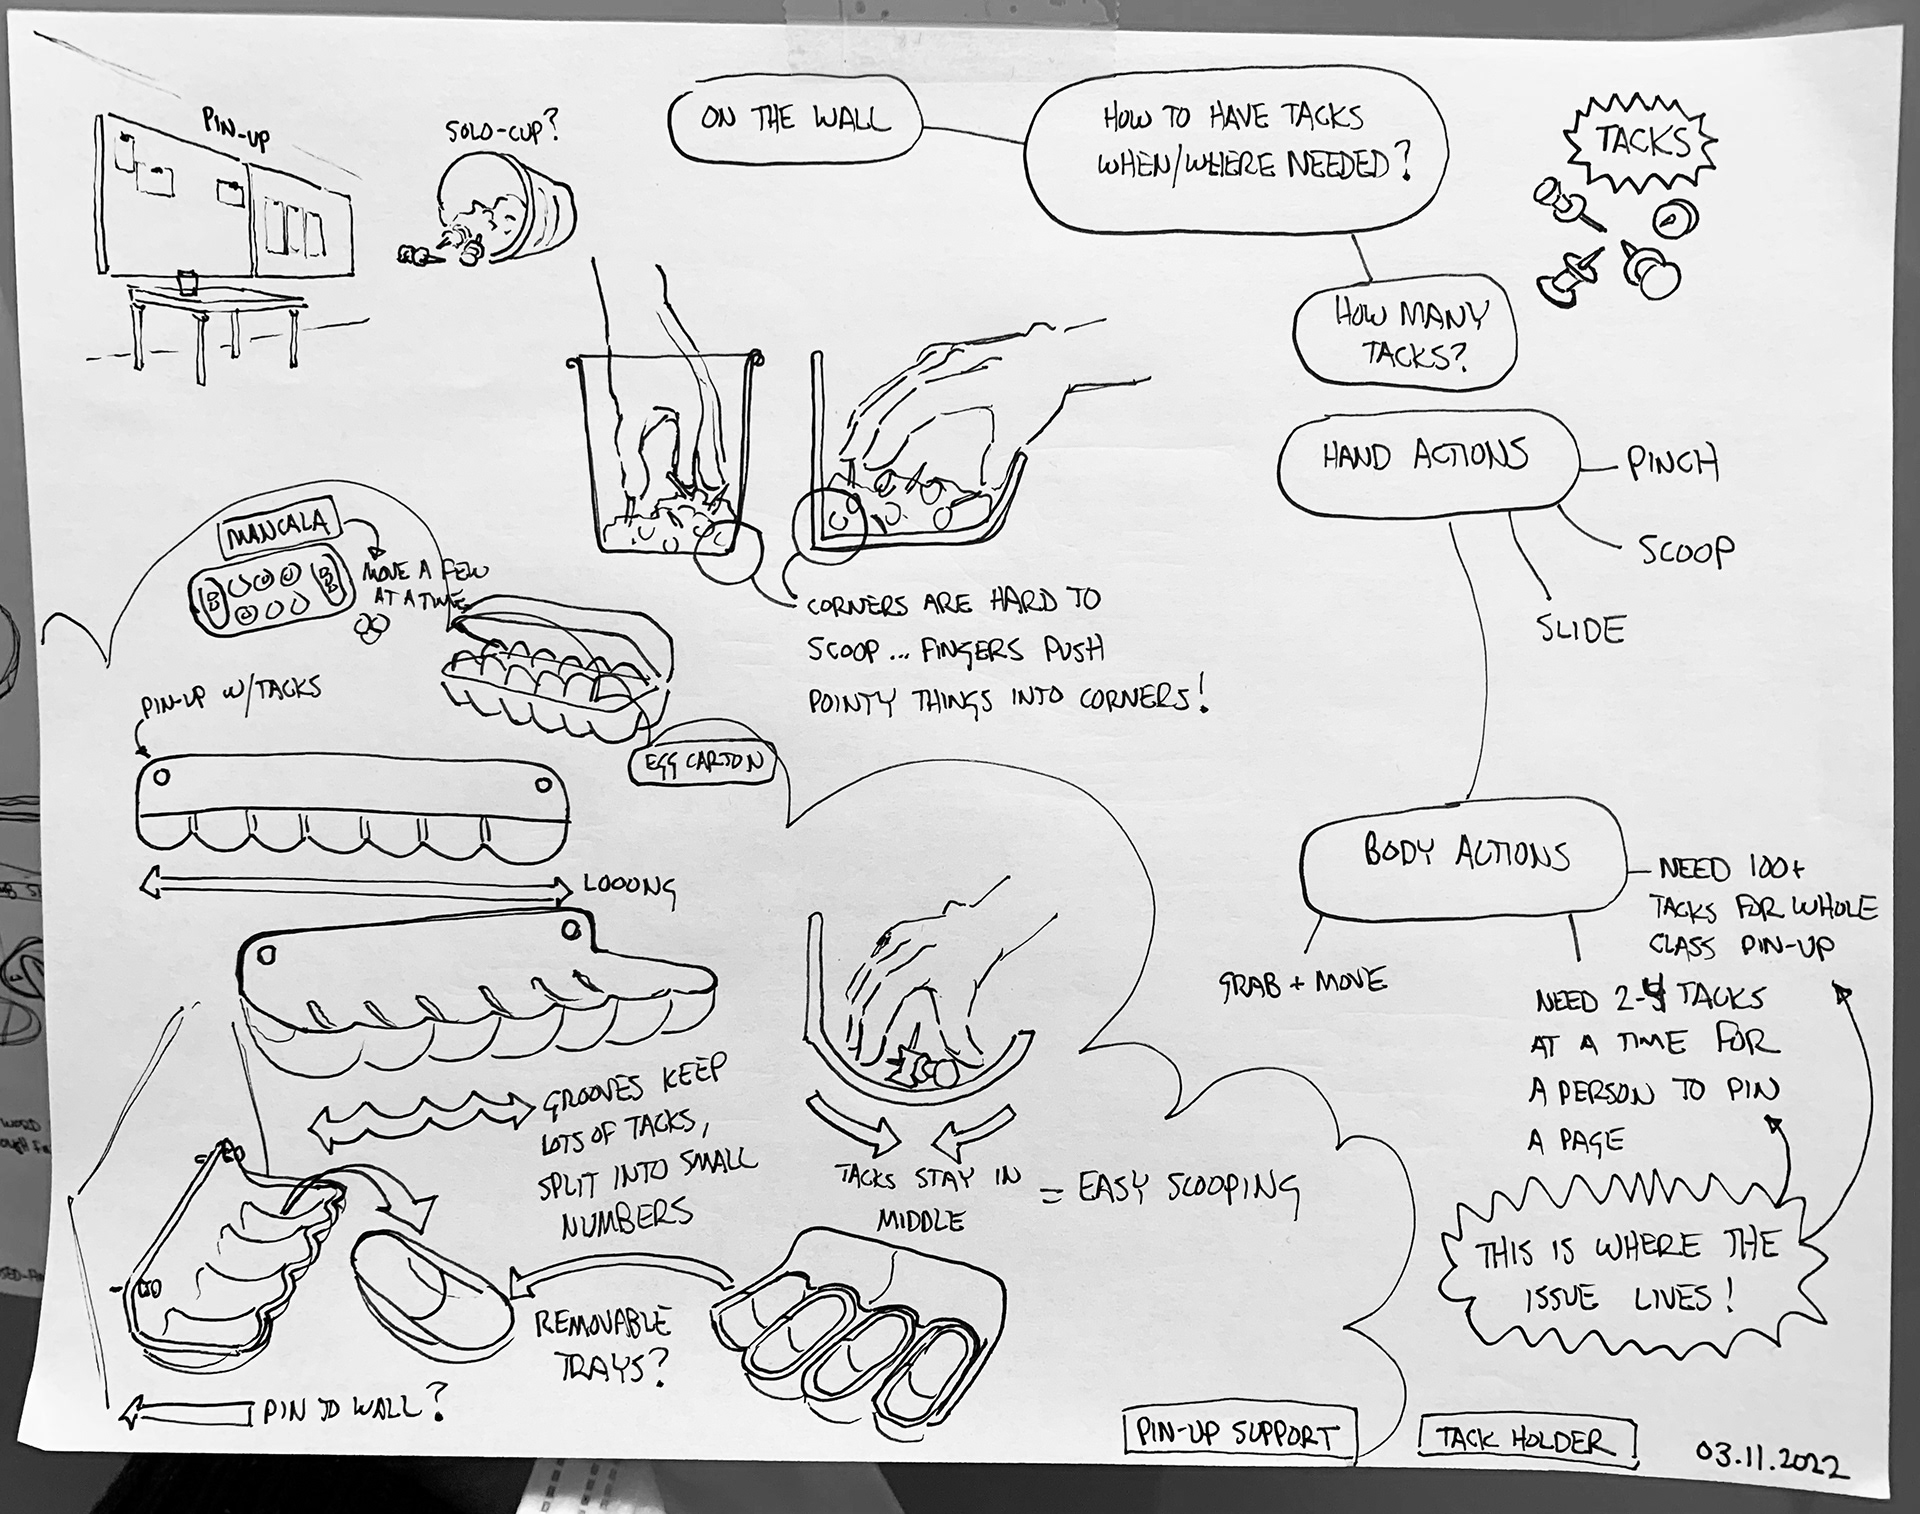 PIN-UP
SOLO-CUP?
ON THE WALL
HOW TO HAVE TACKS
WHEN/WHERE NEEDED?
TACKS
HOW MANY
TACKS?
HAND ACTIONS
PINCH
SCOOP
SLIDE
MANCALA
MOVE A FEW
AT A TIME
CORNERS ARE HARD TO
SCOOP... FINGERS PUSH
POINTY THINGS INTO CORNERS!
PIN-UP W/TACKS
EGG CARTON
LOOONG
BODY ACTIONS
NEED 100+
TACKS FOR WHOLE
CLASS PIN-UP
GRAB + MOVE
NEED 2-4 TACKS
AT A TIME FOR
A PERSON TO PIN
A PAGE
GROOVES KEEP
LOTS OF TACKS,
SPLIT INTO SMALL
NUMBERS
TACKS STAY IN
MIDDLE
= EASY SCOOPING
THIS IS WHERE THE
ISSUE LIVES!
REMOVABLE
TRAYS?
PIN TO WALL?
PIN-UP SUPPORT
TACK HOLDER
03.11.2022